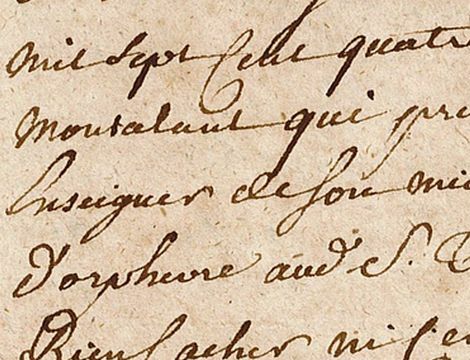 mil sept Cent quatr
Montalant qui pr
Enseigner de son mi
d'orphevre aud. S.
Rien Cacher ni Ce